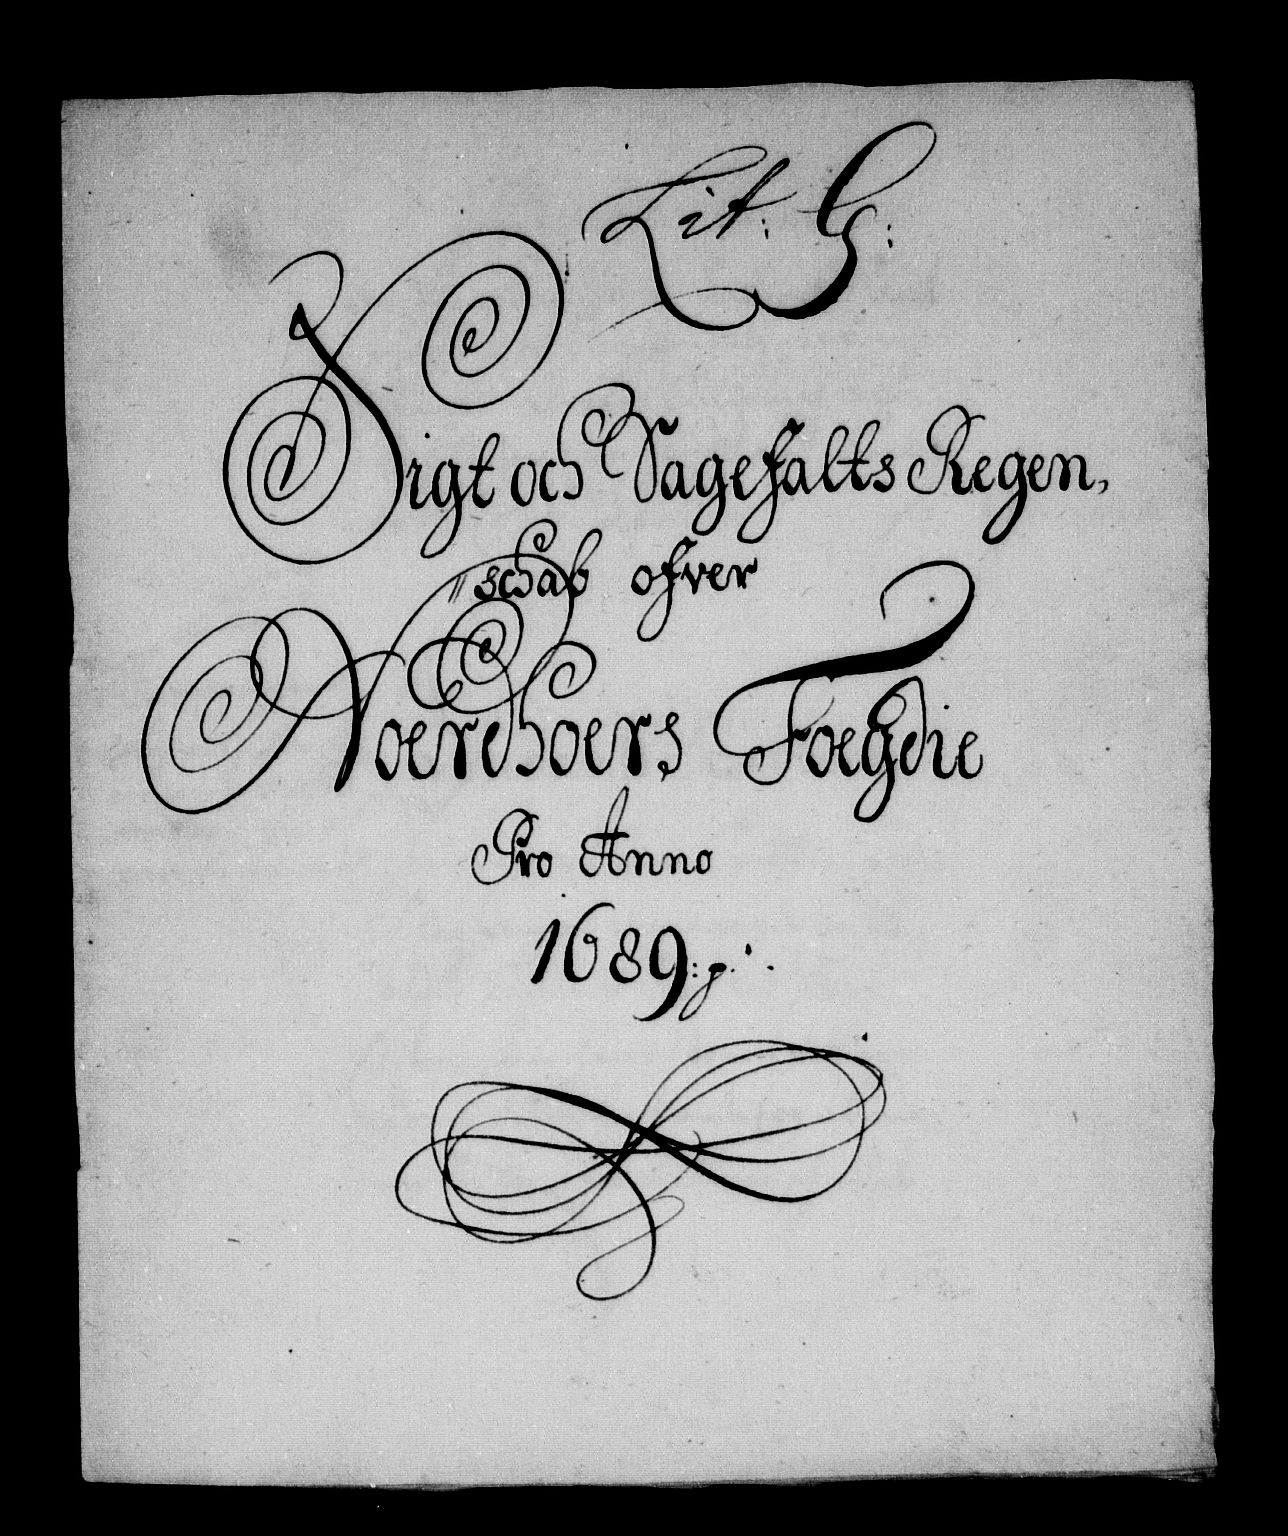 Lit: G:
Sigt och Sagefalts Regen,
schab ofver
Noerdhoers Foegdie
Pro Anno
1689:p.